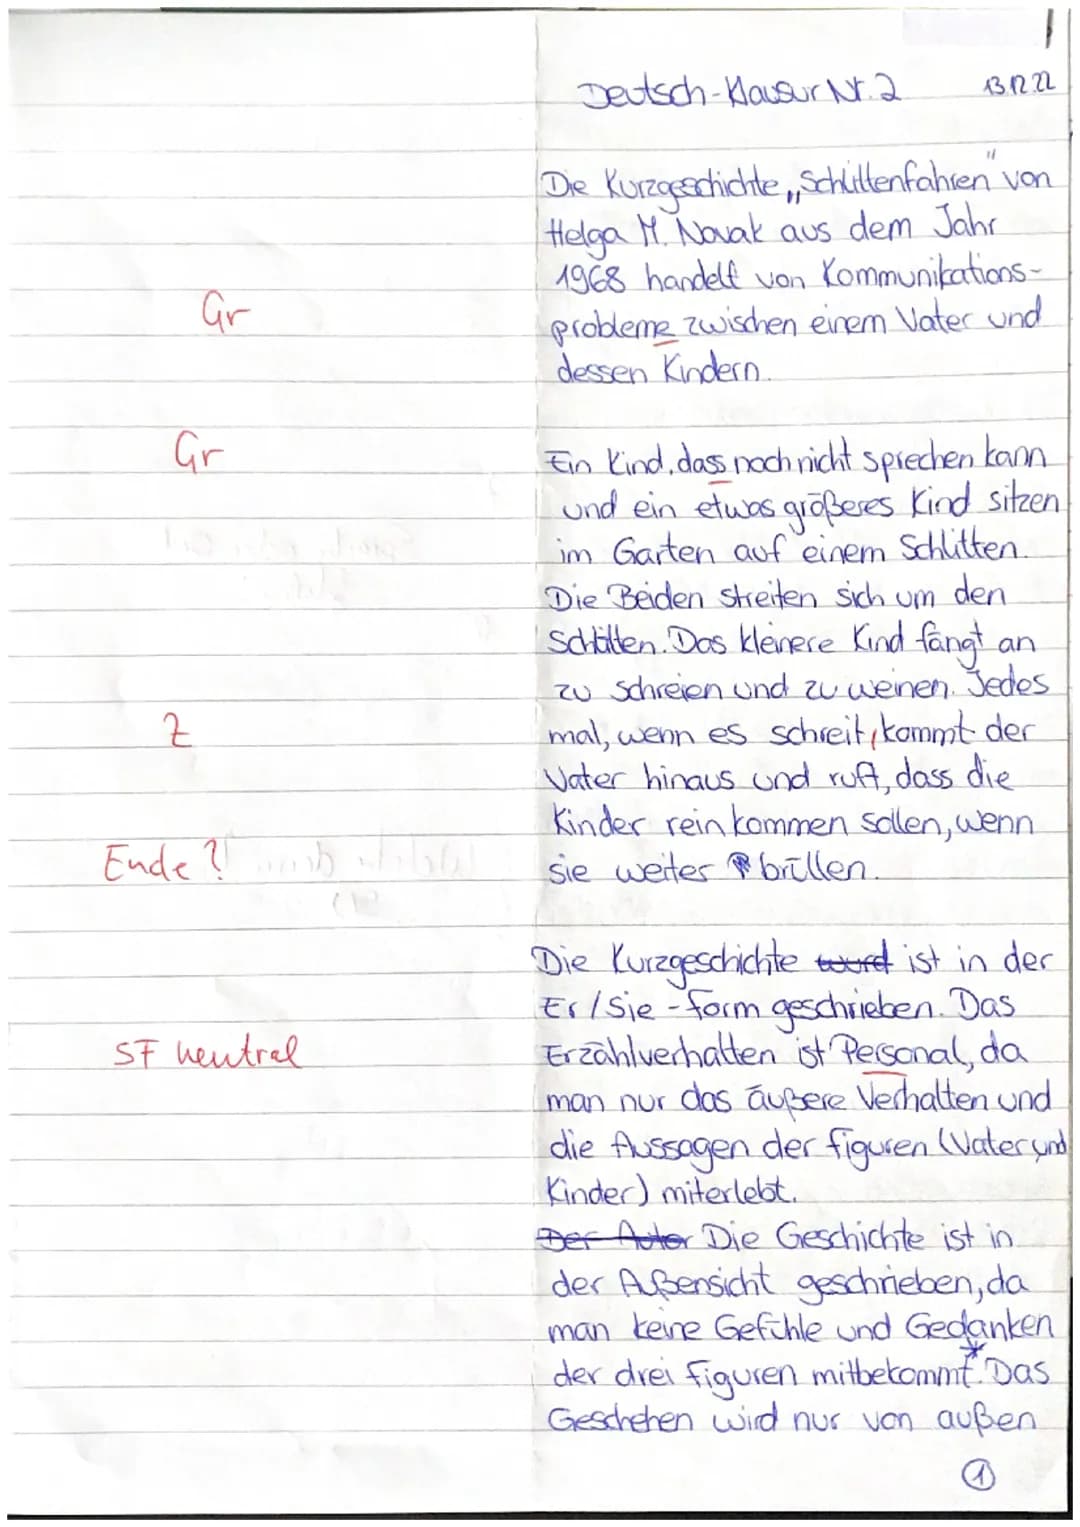 Deutsch-Klausur Nr. 2 13.12.22
Die Kurzgeschichte „Schlittenfahren" von
Helga M. Novak aus dem Jahr
1968 handelt von Kommunikations-
Gr
probleme zwischen einem Vater und
dessen Kindern.
Gr
Ein Kind, dass noch nicht sprechen kann
und ein etwas größeres Kind sitzen
im Garten auf einem Schlitten.
Die Beiden streiten sich um den
Schlitten. Das kleinere Kind fängt an
zu schreien und zu weinen. Jedes
Z
mal, wenn es schreit, kommt der
Vater hinaus und ruft, dass die
Kinder reinkommen sollen, wenn
Ende?
sie weiter brüllen.
Die Kurzgeschichte ist in der
Er/Sie-Form geschrieben. Das
SF neutral
Erzählverhalten ist Personal, da
man nur das äußere Verhalten und
die Aussagen der Figuren (Vater und
Kinder) miterlebt.
Der Autor Die Geschichte ist in
der Außensicht geschrieben, da
man keine Gefühle und Gedanken
der drei Figuren mitbekommt.* Das
Geschehen wird nur von außen
1